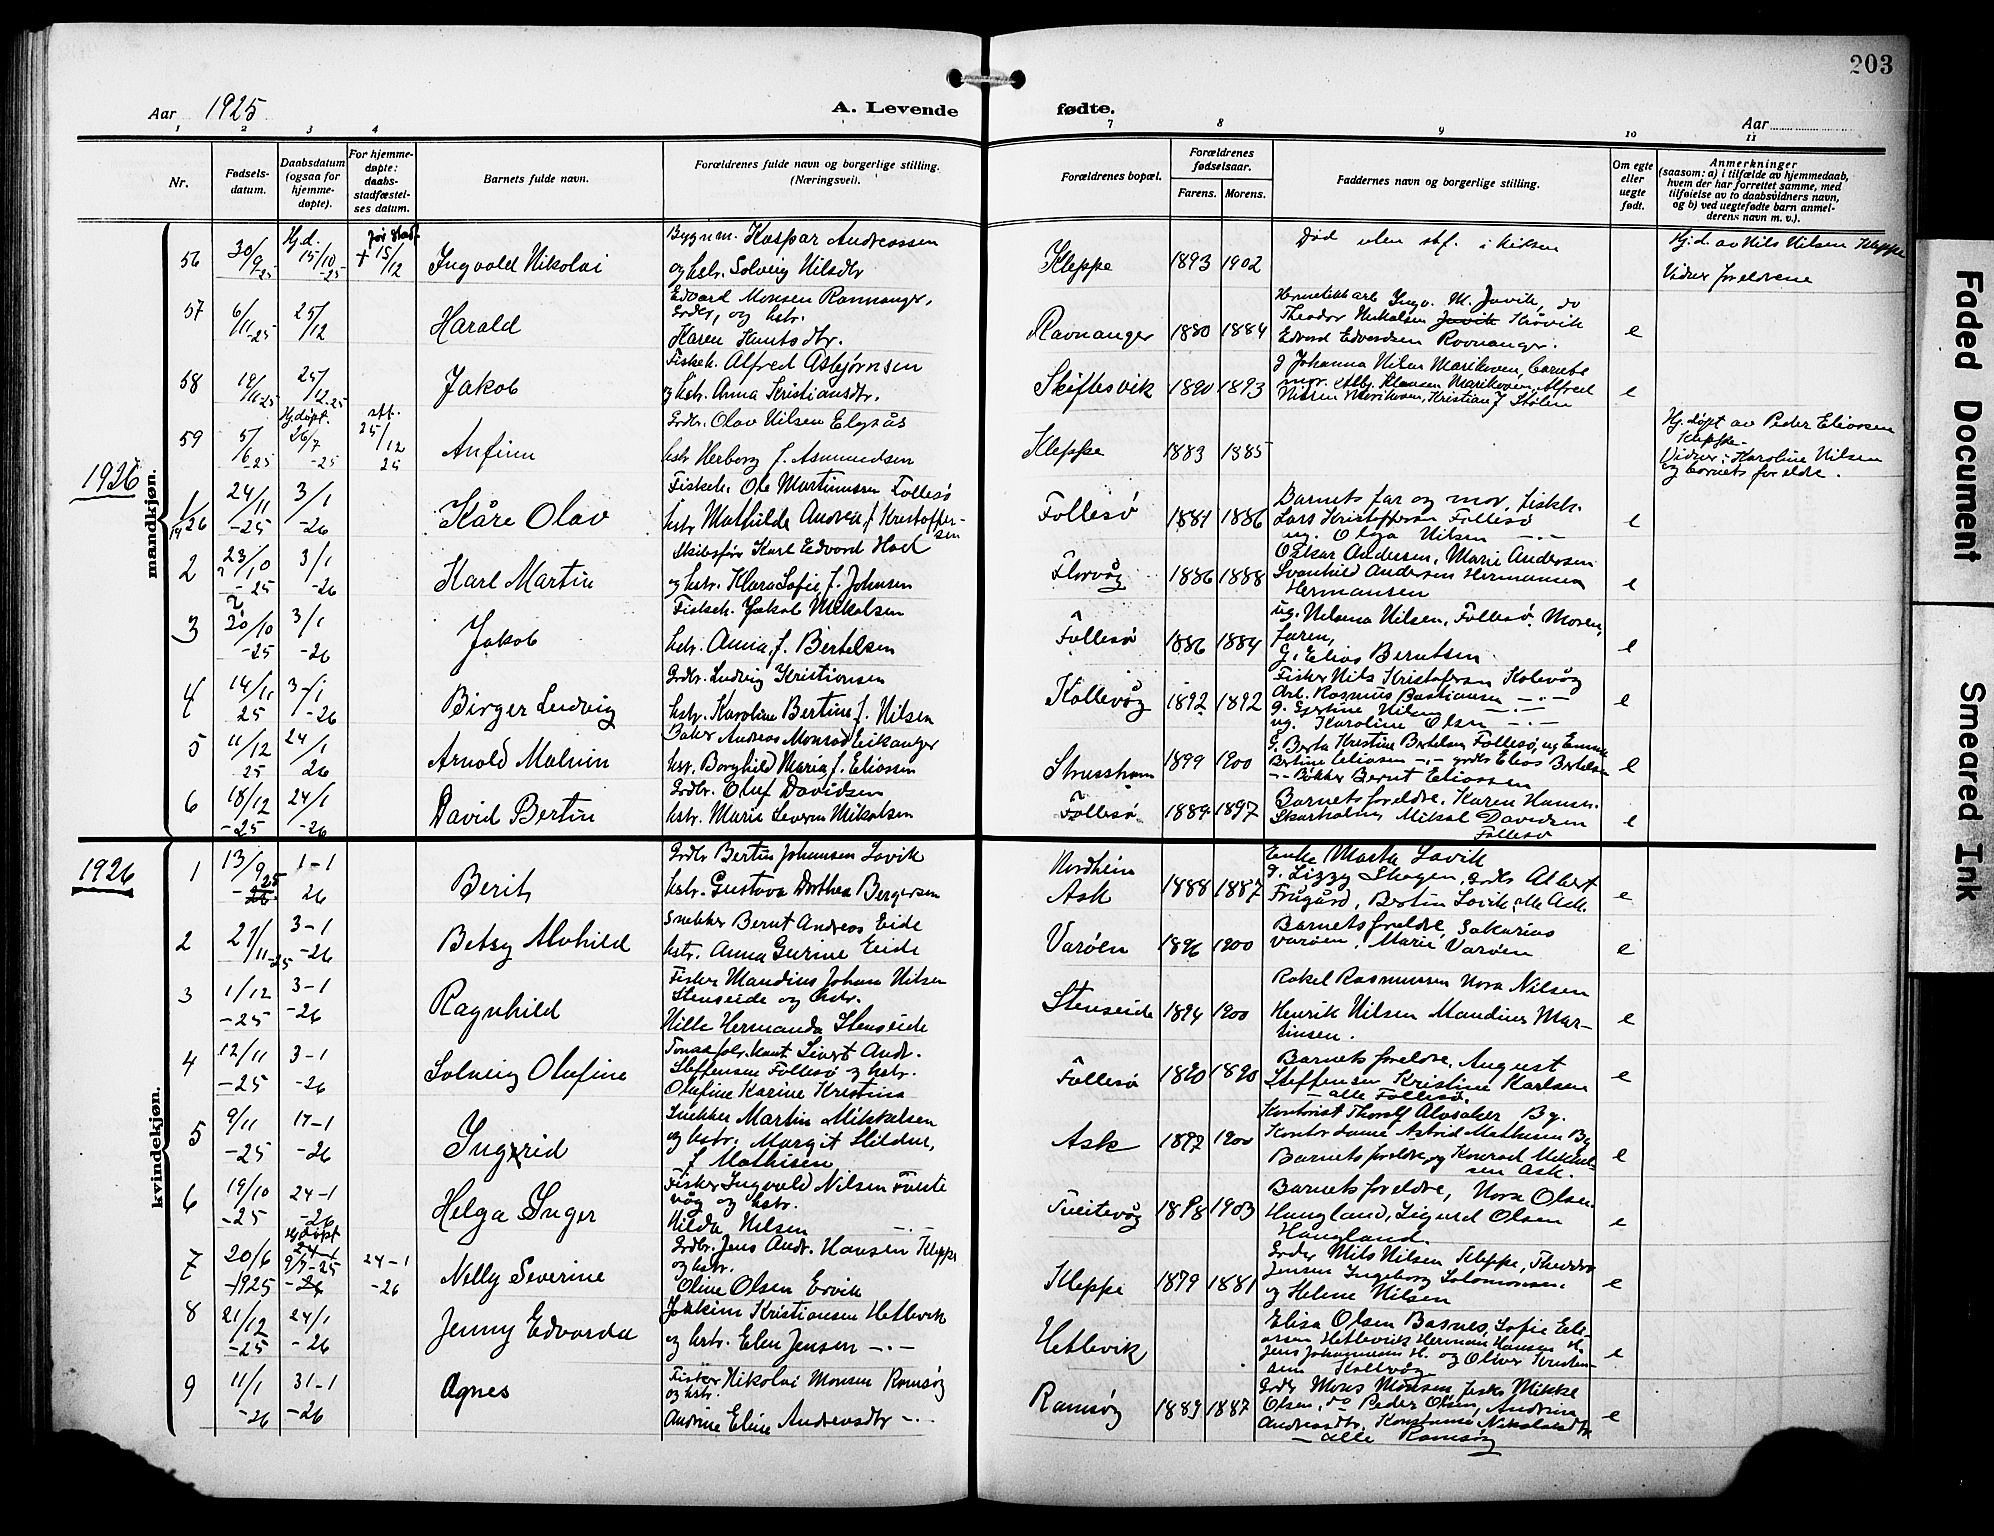 203
Aar 1925
A. Levende fødte.
Aar
1 2 3 4 7 8 9 10 11
Nr.
Fødsels-
datum.
Daabsdatum
(ogsaa for
hjemme-
døpte).
For hjemme-
døpte:
daabs-
stadfæstel-
ses datum.
Barnets fulde navn.
Forældrenes fulde navn og borgerlige stilling.
(Næringsvei).
Forældrenes bopæl.
Forældrenes
fødselsaar.
Farens. Morens.
Faddernes navn og borgerlige stilling.
Om egte
eller
uegte
født.
Anmerkninger
(saasom: a) i tilfælde av hjemmedaab,
hvem der har forrettet samme, med
tilføielse av to daabsvidners navn,
og b) ved uegtefødte barn anmel-
derens navn m. v.).
mandkjøn.
56 30/9 -25 Hj.d. 15/10 -25 før stadf. + 15/12 Ingvald Nikolai
Bygnm. Kaspar Andreassen
og hstr. Solveig Nilsdtr
Kleppe 1893 1902
Død uten stf. i kirken
Hj.d. av Nils Nilsen Kleppe
Vidner foreldrene
57 6/11 -25 25/12 Harald
Edvard Monsen Ravnanger,
Grdbr, og hstr.
Karen Knutsdtr.
Ravnanger 1880 1884
Edvard Edvardsen Ravnanger. e
58 19/11 -25 25/12 -25 Jakob
Fiskeh. Alfred Asbjørnsen
og hstr. Anna Kristiansdtr.
Skiftesvik 1890 1893
Nilsen Marikoven, Kristian J Stølen e
59 5/6 -25 Hj.døpt. 26/7 -25 stf. 25/12 25 Anfinn
Grdbr. Olav Nilsen
hstr Herborg f. Asmundsen
Kleppe 1883 1885
Hj. døpt av Peder Eliassen
Kleppe.
Vidner: Karoline Nilsen
og barnets foreldre.
1926
1/26 24/11 -25 3/1 -26 Kåre Olav
Fiskeh. Ole Martinussen Follesø
hstr Mathilde Andrea f. Kristoffer-
sen
Follesø 1881 1886
Barnets far og mor, fiskh.
Lars Kristoffersen Follesø
ug. Olga Nilsen -·- e
2 23/10 -25 3/1 -26 Karl Martin
Skibsfør Karl Edvard
og hstr. Klara Sofie f. Johnsen
Florvåg 1886 1888
Oskar Andersen, Marie Andersen
Svanhild Andersen Hermanna
Hermansen e
3 20/10 -25 3/1 -26 Jakob
Fiskeh. Jakob Mikalsen
hstr. Anna f. Bertelsen
Follesø 1886 1884
ug. Nilsena Nilsen, Follesø. Moren,
faren,
G. Elias Berntsen e
4 14/11 25 3-/1 -26 Birger Ludvig
Grdbr. Ludvig Kristiansen
hstr. Karoline Bertine f. Nilsen
Kollevåg 1892 1892
Fisker Nils Kristofersen Kolevåg
Arb. Rasmus Bastiansen -·-
g. Gjertine Nilsen -·-
ug. Karoline Olsen -·- e
5 11/12 25 24/1 26 Arnold Malvin
Baker Andreas Monrad Eikanger
hstr. Borghild Maria f. Eliassen
Strusshamn 1899 1900
G. Berta Kristine Bertelsen Follesø, ug Emma
Bertine Eliasen -·- grdbr Elias Bertelsen
-·- Bøkker Bernt Eliassen e
6 18/12 -25 24/1 -26 David Bertin
Grdbr. Oluf Davidsen
hstr. Marie Severine Mikalsen
Follesø 1889 1897
Barnets foreldre, Karen Hansen
Skarholmen, Mikal Davidsen
Follesø e
1926
kvindekjøn.
1 13/9 -25 1-1 26 Berit
Grdbr Bertin Johansen Lavik
hstr. Gustava Dorthea Bergersen
Nordheim
Ask 1888 1887
Enke Marta Lavik
G. Lizzy Skogen, Grdbr Albert
Frugård, Bertin Lavik, alle Ask. e
2 27/11 -25 3-1 -26 Betsy Alvhild
Snekker Bernt Andreas Eide
hstr. Anna Gurine Eide
Varøen 1896 1900
Barnets foreldre, Sakarias
Varøen, Marie Varøen e
3 1/12 -25 3-1 -26 Ragnhild
Fisker Mandius Johan Nilsen
Stenseide og hstr.
Hilla Hermanda Stenseide
Stenseide 1894 1900
Rakel Rasmussen Nora Nilsen
Henrik Nilsen Mandius Mar-
tinsen. e
4 12/11 -25 3-1 -26 Solveig Olufine
Sivert Andr.
Steffensen Follesø og hstr.
Olufine Karine Kristina
Follesø 1890 1890
Barnets foreldre, August
Steffensen Kristine Karlsen
- alle Follesø. e
5 9/11 -25 17-1 -26 Ingrid
Snekker Martin Mikkalsen
og hstr. Margit Hildur,
f Mathisen
Ask 1892 1900
Kontorist Thorolf Alvsaker By.
Kontordame Astrid Mathisen By
Barnets foreldre og Konrad Mikkel-
sen Ask. e
6 19/10 -25 24-1 -26 Helga Inger
Fisker Ingvald Nilsen Tveite
våg og hstr.
Hilda Nilsen -·-
Tveitevåg 1898 1903
Barnets foreldre, Nora Olsen
Haugland, Sigurd Olsen
Haugland. e
7 20/6 -1925 Hj.døpt 9/7-25 24-1 -26 Nelly Severine
Grdbr. Jens Andr. Hansen Kleppe
og hstr.
Oline Olsen Ervik
Kleppe 1879 1881
Grdbr Nils Nilsen Kleppe, Theodor
Jensen Ingeborg Solomonsen.
og Helene Nilsen e
8 21/12 -25 24/1 -26 Jenny Edvarda
Joakim Kristiansen Hetlevik
og hstr. Elen Jensen -·-
Hetlevik
Elisa Olsen Basnes, Sofie Eli-
assen Hetlevik Herman Hansen H.
Jens Johannessen H. og Oliver Kristen-
sen Kollevåg e
9 11/1 -26 31-1 -26 Agnes
Fisker Nikolai Monsen Ramsøy
og hstr.
Andrine Eline Andreasdtr -·-
Ramsøy 1889 1887
Grdbr Mons Monsen, fisker Mikkel
Olsen, do Peder Olsen, Andrina
Andreasdtr, Konstanse Nikolaisdtr
- alle Ramsøy e
Faded Document
Smeared Ink